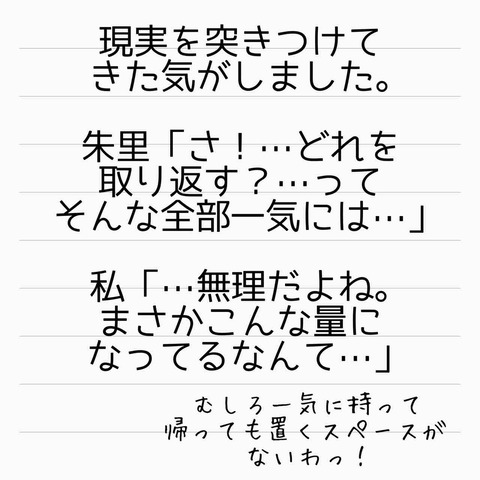 現実を突きつけて
きた気がしました。
朱里「さ！…どれを
取り返す？…って
そんな全部一気には…」
私「…無理だよね。
まさかこんな量に
なってるなんて…」
むしろ一気に持って
帰っても置くスペースが
ないわっ！